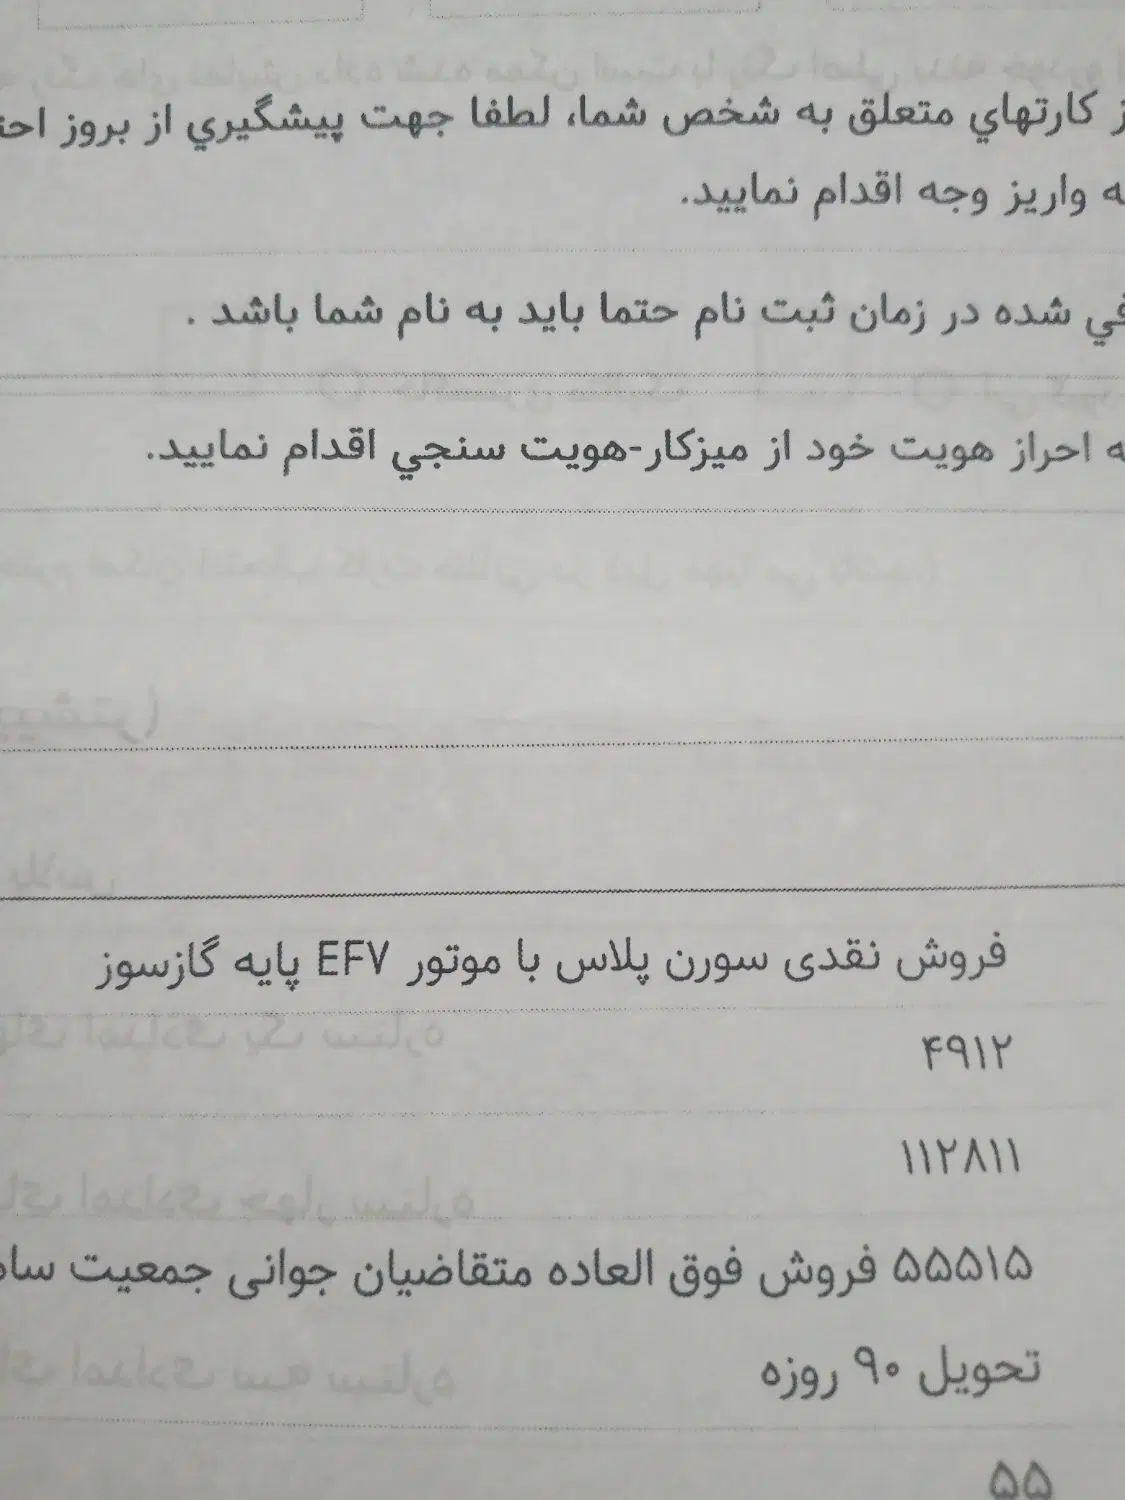 کارتهاي متعلق به شخص شما، لطفا جهت پيشگيري از بروز
واریز وجه اقدام نمایید.
شده در زمان ثبت نام حتما باید به نام شما باشد .
احراز هویت خود از میزکار-هویت سنجي اقدام نمایید.
فروش نقدی سورن پلاس با موتور EF۷ پایه گازسوز
۴۹۱۲
۱۱۲۸۱۱
۵۵۵۱۵ فروش فوق العاده متقاضیان جوانی جمعیت
تحویل ۹۰ روزه
۵۵